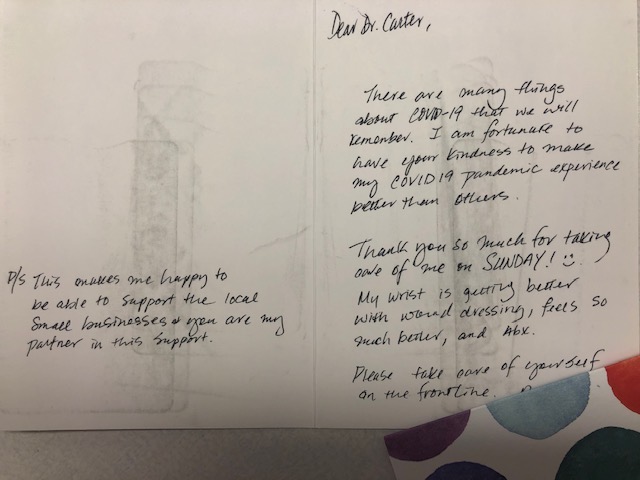 Dear Dr. Carter,
There are many things
about COVID-19 that we will
remember. I am fortunate to
have your kindness to make
my COVID19 pandemic experience
better than others.
Thank you so much for taking
care of me on SUNDAY! ☺
My wrist is getting better
with wound dressing, feels so
much better, and Abx.
Please take care of yourself
on the frontline.
P/S This makes me happy to
be able to support the local
small businesses & you are my
partner in this support.